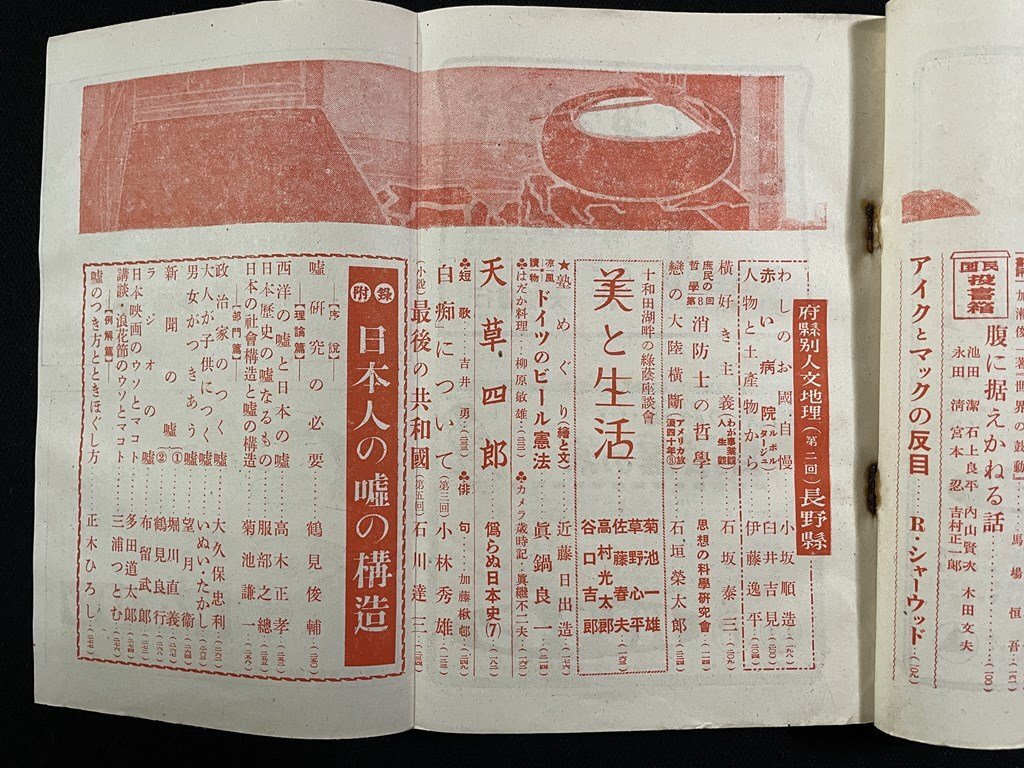 国民投書箱
腹に据えかねる話
池田潔 石上良平 内山賢次 木田文夫
永田清 宮本忍 吉村正一郎
アイクとマックの反目……R・シャーウッド…
府縣別人文地理(第二回)長野縣
わしのお國自慢……小坂順造
赤い病院(ルポルタージュ)……臼井吉見
人物と土產物から……伊藤逸平
横好き主義(わが事業觀人生觀)……石坂泰三
庶民の哲學 第8回 消防士の哲學……思想の科學硏究會
戀の大陸橫斷(アメリカ放浪四十年⑨)……石垣榮太郎
十和田湖畔の綠蔭座談會
美と生活
菊池一雄
草野心平
佐藤春夫
高村光太郎
谷口吉郎
★塾めぐり(繪と文)……近藤日出造
凉風讀物 ドイツのビール憲法……眞鍋良一
♣はだか料理…柳原敏雄 ♣カメラ歳時記…眞繼不二夫
天草四郎……僞らぬ日本史(7)
♣短歌…吉井勇 ♣俳句…加藤楸邨
「白痴」について(第三回)……小林秀雄
(小說)最後の共和國(第五回)……石川達三
附錄 日本人の嘘の構造
【序說】
嘘硏究の必要……鶴見俊輔
【理論篇】
西洋の嘘と日本の嘘……高木正孝
日本歷史の嘘なるもの……服部之總
日本の社會構造と嘘の構造……菊池謙一
【部門篇】
政治家のつく嘘……大久保忠利
大人が子供につく嘘……いぬい・たかし
男女がつきあう嘘……望月衞
新聞の嘘①……堀川直義
②……鶴見良行
ラジオの嘘……布留武郎
日本映画のウソとマコト……多田道太郎
講談・浪花節のウソとマコト……三浦つとむ
【例解篇】
嘘のつき方とときほぐし方……正木ひろし